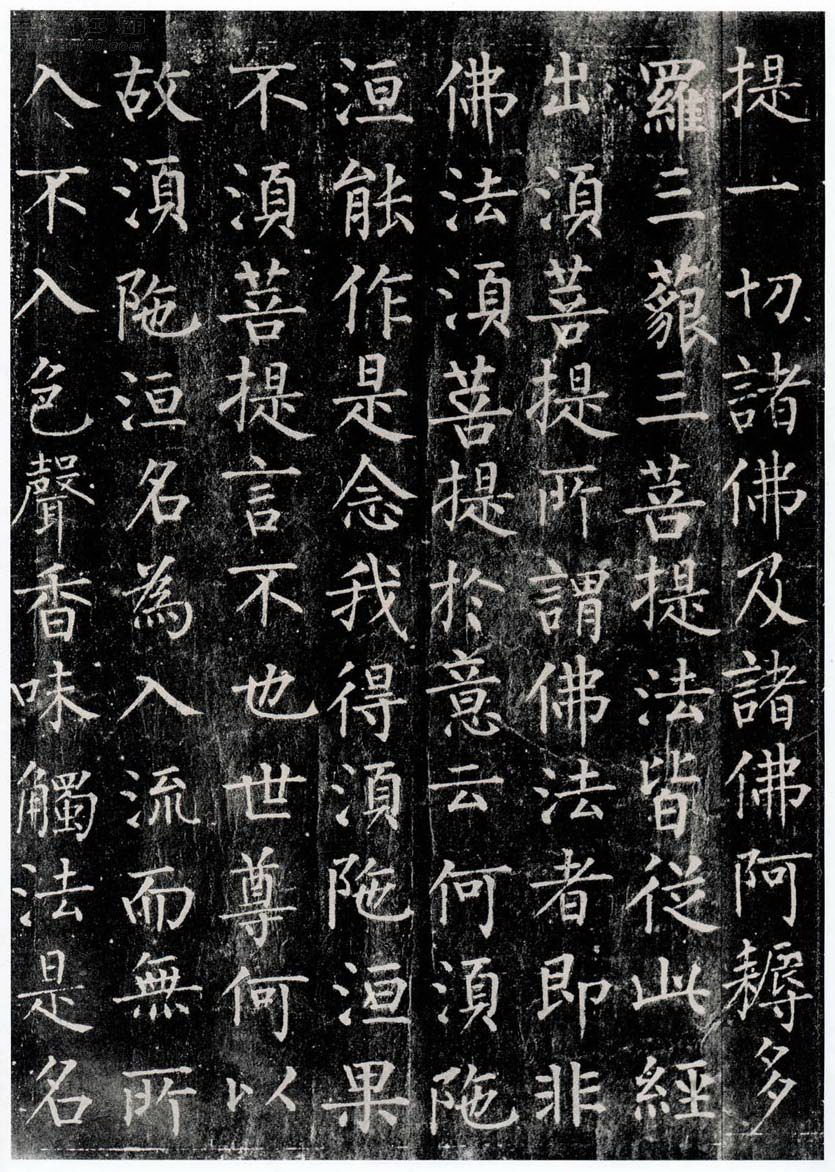 提一切諸佛及諸佛阿耨多
羅三藐三菩提法皆從此經
出須菩提所謂佛法者即非
佛法須菩提於意云何須陁
洹能作是念我得須陁洹果
不須菩提言不也世尊何以
故須陁洹名為入流而無所
入不入色聲香味觸法是名